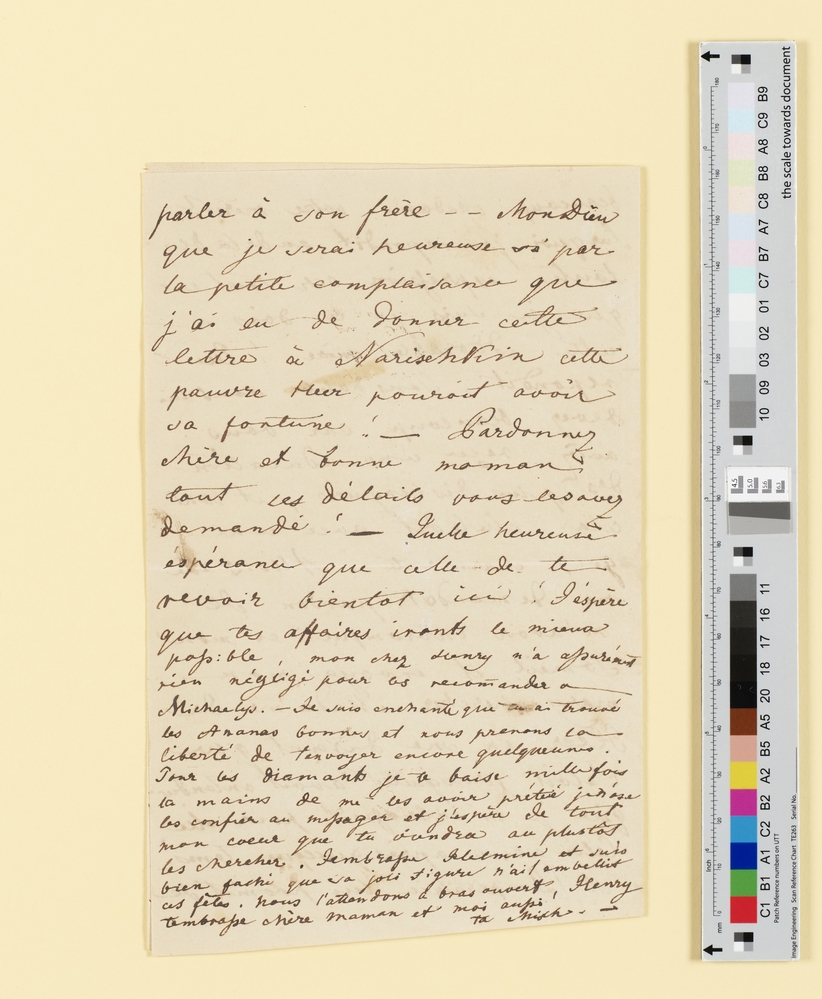 parler à son frère -- Mon Dieu
que je serai heureuse si par
la petite complaisance que
j'ai eu de donner cette
lettre à Narischkin cette
pauvre pouroit avoir
sa fortune ! — Pardonnez
chère et bonne maman
tout ces détails vous les avez
demandé ! — Quelle heureuse
éspérance que celle de te
revoir bientot ici ! J'éspère
que tes affaires iront le mieux
possible, mon cher Henry n'a assurément
rien négligé pour les recomander a
Michaelys. — Je suis enchanté que tu ai trouvé
les Ananas bonnes et nous prenons la
liberté de t'envoyer encore quelqueunes.
Pour les diamants je te baise mille fois
la mains de me les avoir prétté je n'ose
les confier au messager et j'éspère de tout
mon coeur que tu viendra au plustôt
les chercher. J'embrasse et suis
bien faché que sa joli figure n'ai embellit
ces fêtes. Nous l'attendons a bras ouverts, Henry
t'embrasse chère maman et moi aussi,
ta —
the scale towards document
B9
C9
A8
B8
C8
A7
B7
C7
01
02
03
09
10
11
16
17
18
20
A5
B5
A2
B2
C2
A1
B1
C1
Patch Reference numbers on UTT
Image Engineering Scan Reference Chart TE263 Serial No.
Inch
mm